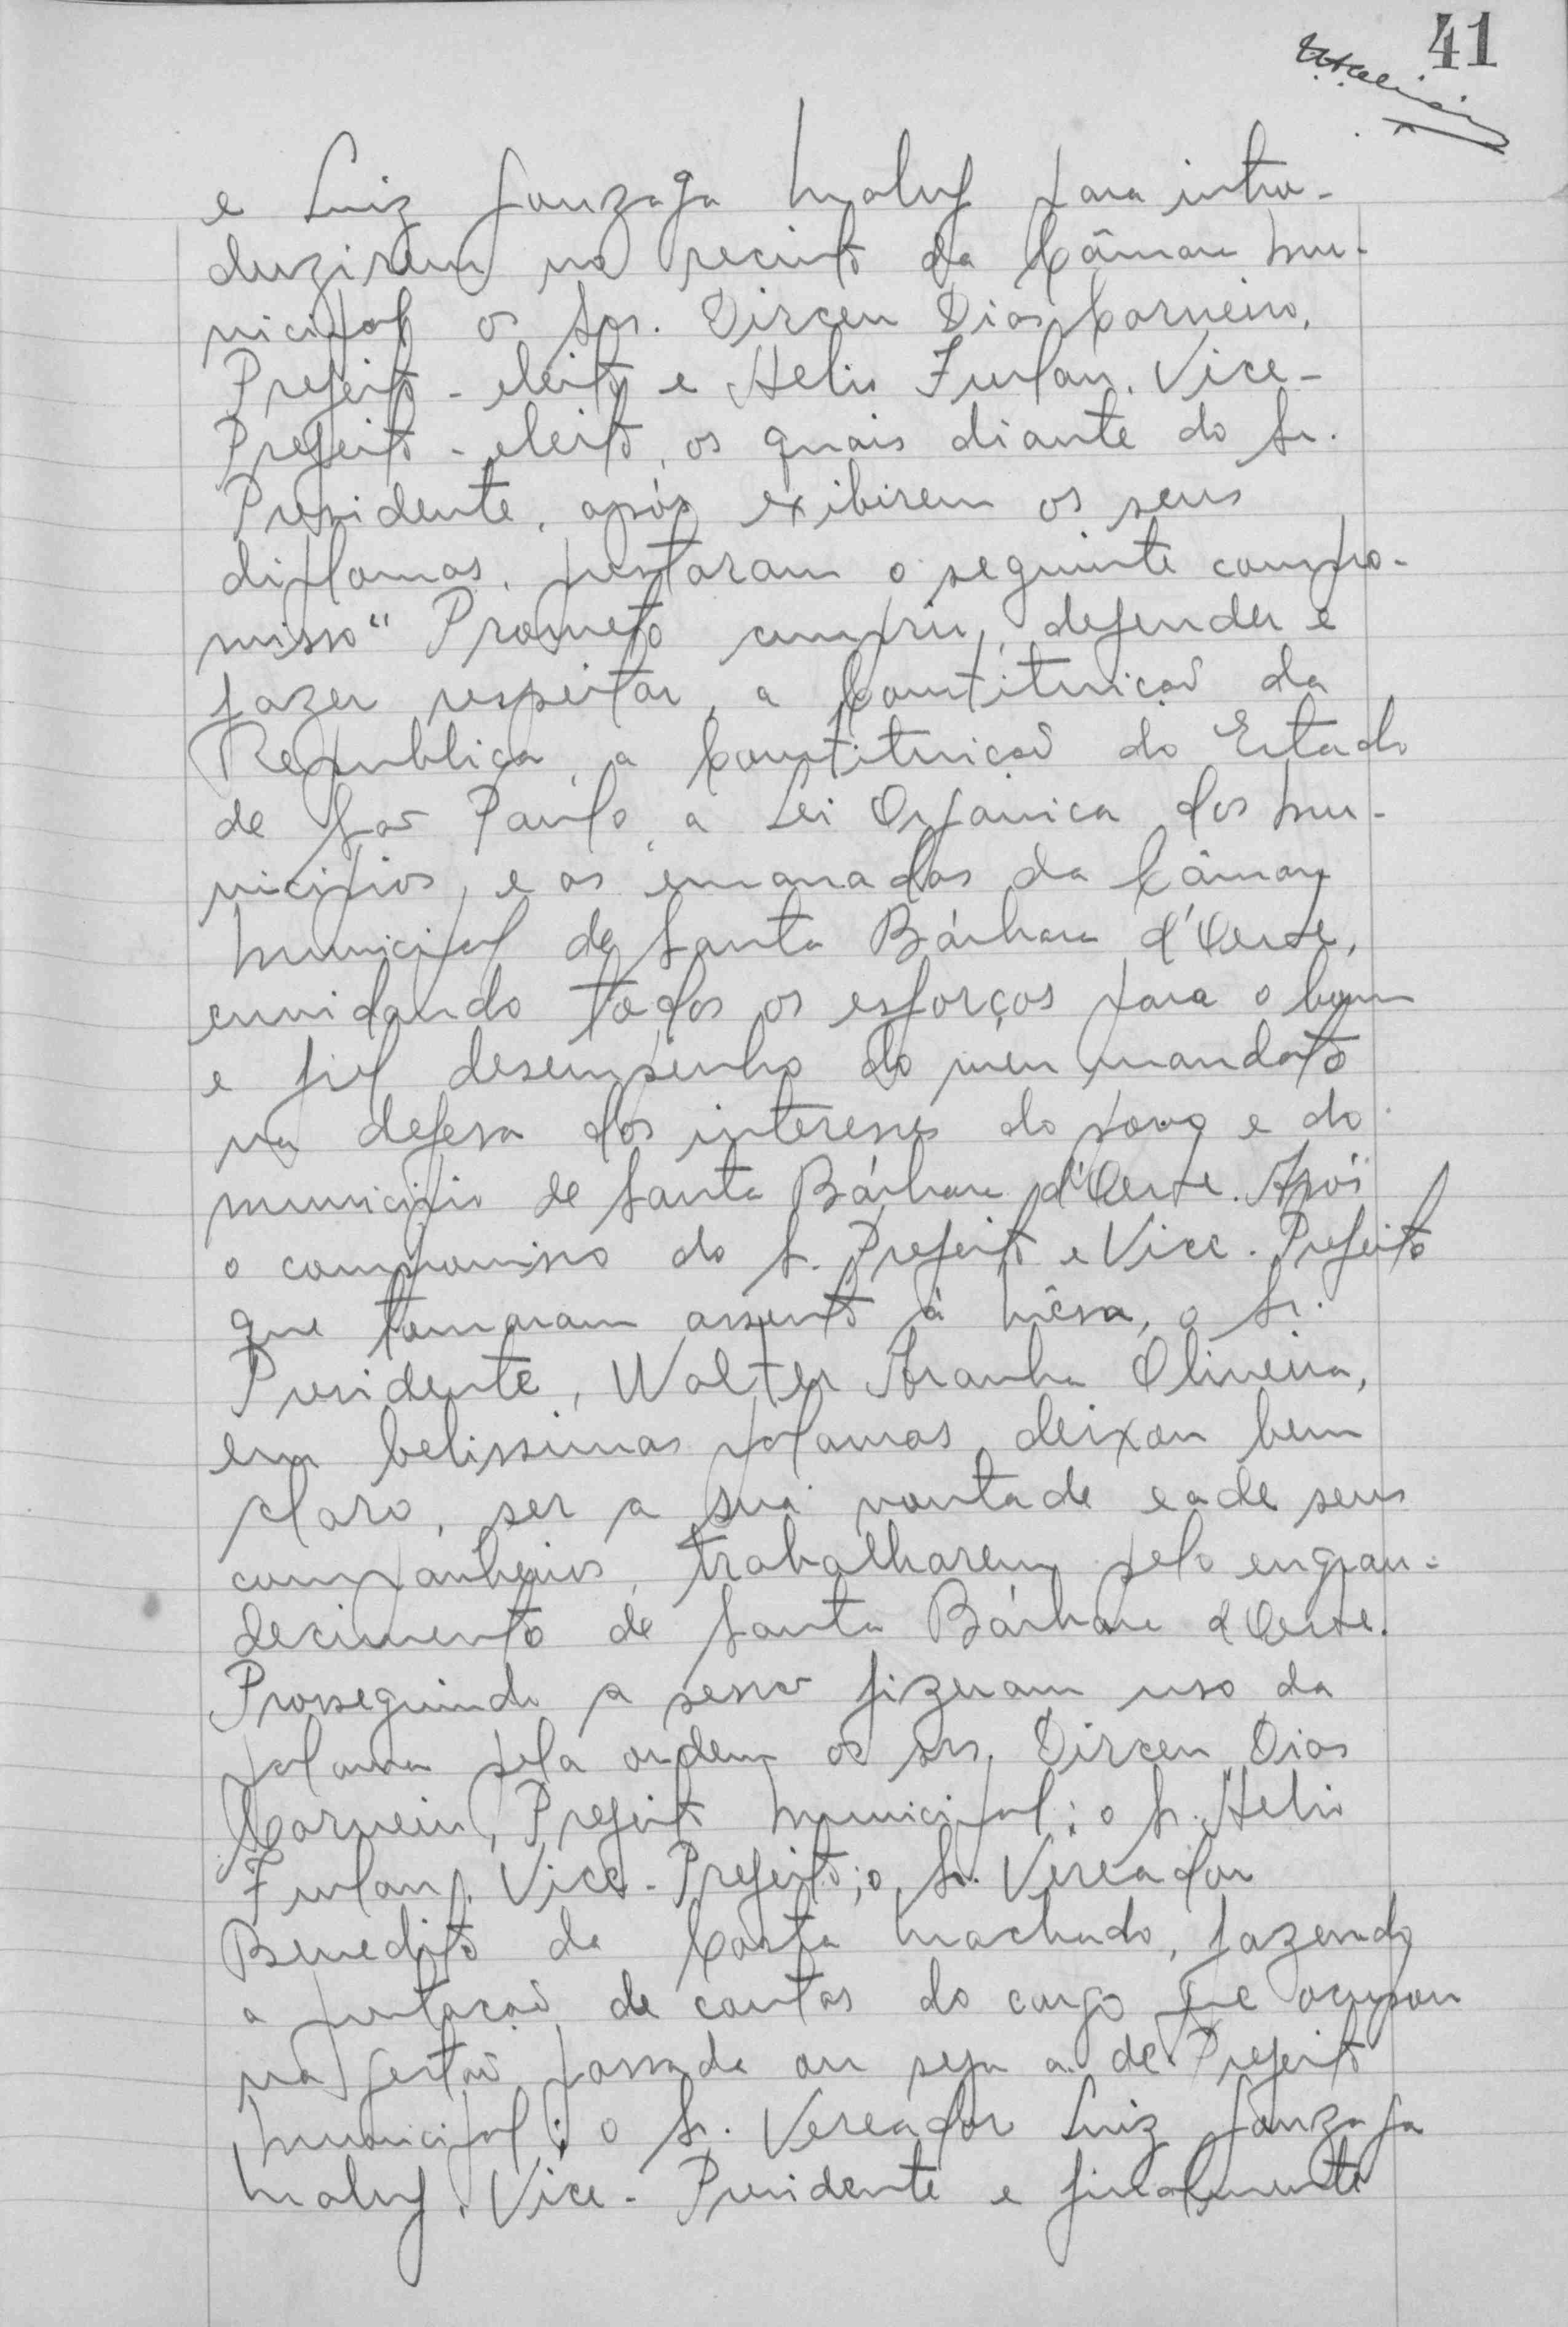 41
e Luiz Gonzaga Maluf para intro-
duzirem no recinto da Câmara Mu-
nicipal os Srs. Dirceu Dias Carneiro,
Prefeito - eleito e Helio Furlan, Vice-
Prefeito - eleito, os quais diante do Sr.
Presidente, após exibirem os seus
diplomas, prestaram o seguinte compro-
misso "Prometo cumprir, defender e
fazer respeitar, a Constituição da
Republica, a Constituição do Estado
de São Paulo, a Lei Organica dos Mu-
nicipios, e as emanadas da Câmara
Municipal de Santa Bárbara d'Oeste,
envidando todos os esforços para o bom
e fiel desempenho do meu mandato
na defesa dos interesses do povo e do
municipio de Santa Bárbara d'Oeste. Após
o compromisso do S. Prefeito e Vice-Prefeito
que tomaram assento à Mêsa, o Sr.
Presidente, Walter Aranha Oliveira,
em belissimas palavras deixou bem
claro, ser a sua vontade e a de seus
companheiros, trabalharem pelo engran-
decimento de Santa Bárbara d'Oeste.
Prosseguindo a sessão fizeram uso da
palavra pela ordem os srs. Dirceu Dias
Carneiro, Prefeito Municipal; o Sr. Helio
Furlan, Vice-Prefeito; o Sr. Vereador
Benedito da Costa Machado, fazendo
a prestação de contas do cargo que ocupou
na gestão passada ou seja a de Prefeito
Municipal; o Sr. Vereador Luiz Gonzaga
Maluf, Vice-Presidente e finalmente